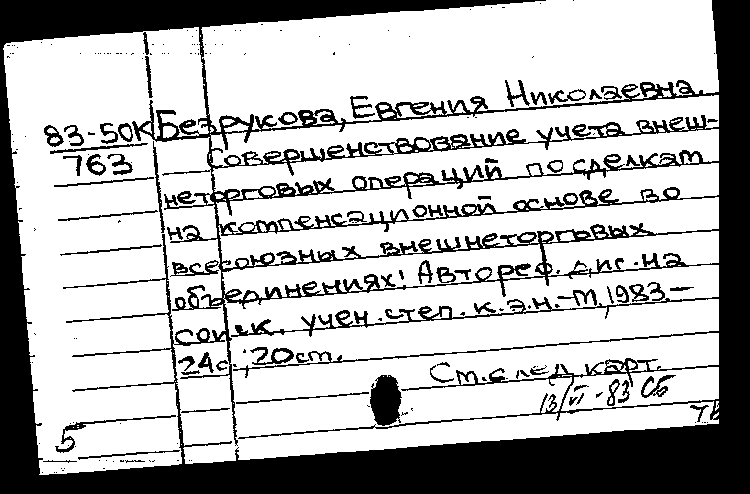 83-50К Безрукова, Евгения Николаевна.
763 Совершенствование учета внеш-
неторговых операций по сделкам
на компенсационной основе во
всесоюзных внешнеторговых
объединениях: Автореф. дис. на
соиск. учен. степ. к.э.н. - М, 1983 -
24с.; 20 ст.
См. след. карт.
13/VI-83 СБ
5